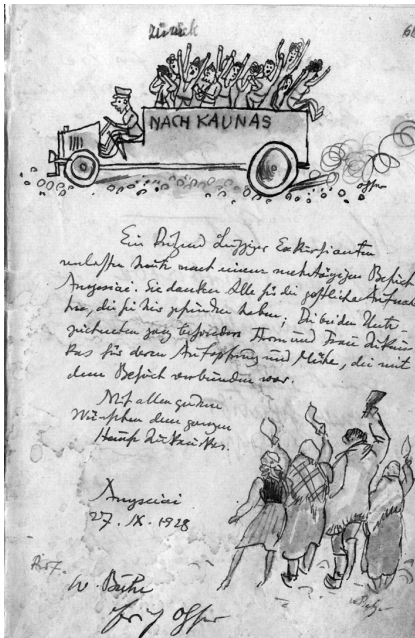 zurück
NACH KAUNAS
Ohser
Ein Dutzend Leipziger Exkursianten
verlassen heute nach einem mehrtägigen Besuch
Sie danken Alle für die gastliche Aufnah-
me, die sie hier gefunden haben; Die beiden Unter-
zeichneten ganz besonders Herrn und Frau
für deren Aufopferung und Mühe, die mit
dem Besuch verbunden war.
Mit allen guten
Wünschen dem ganzen
Hause
27. IX. 1928
W. Buhe
Ohser